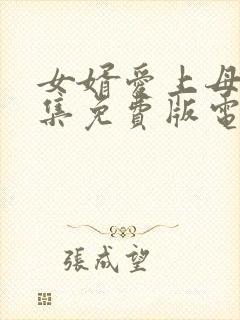 女婿愛上母
集免費版電
張成望